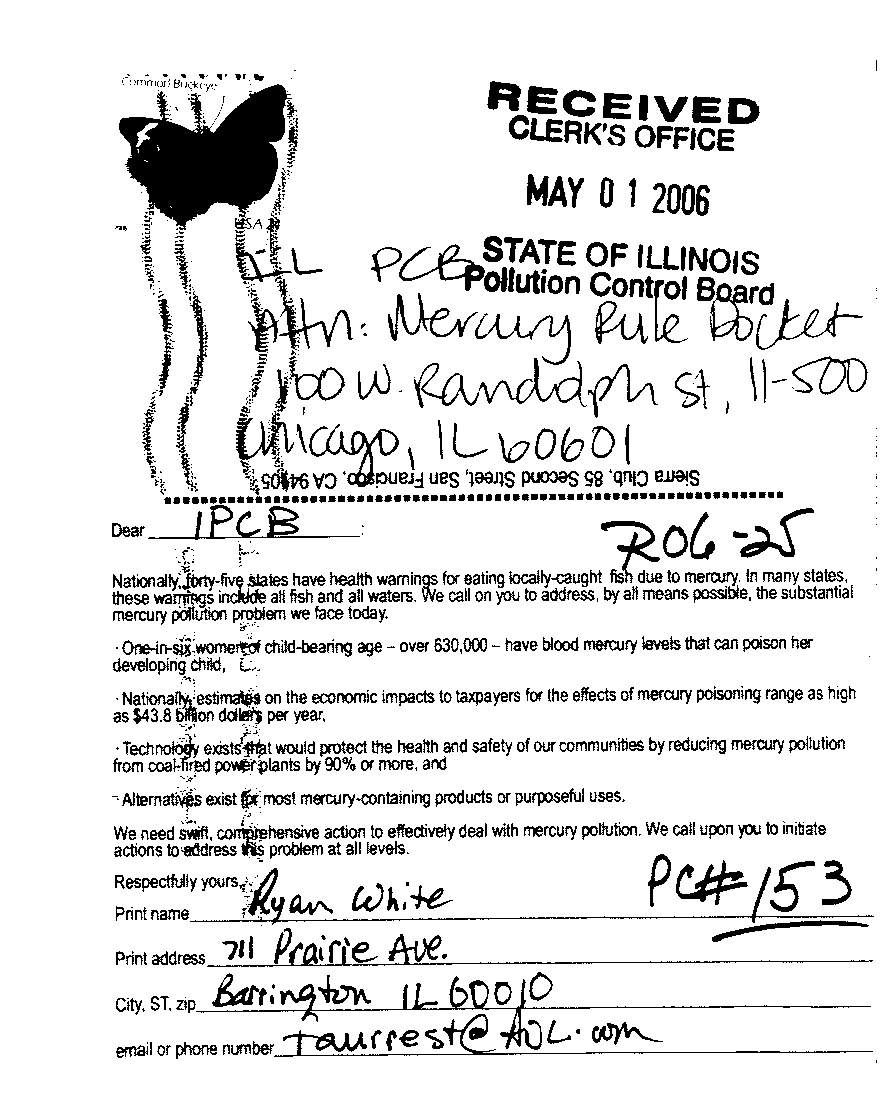 Common Buckeye
RECEIVED
CLERK'S OFFICE
MAY 01 2006
STATE OF ILLINOIS
Pollution Control Board
IL PCB
Attn: Mercury Rule Docket
100 W. Randolph St, 11-500
Chicago, IL 60601
Sierra Club, 85 Second Street, San Francisco, CA 94105
Dear IPCB :
R06-25
Nationally, forty-five states have health warnings for eating locally-caught fish due to mercury. In many states,
these warnings include all fish and all waters. We call on you to address, by all means possible, the substantial
mercury pollution problem we face today.
· One-in-six women of child-bearing age – over 630,000 – have blood mercury levels that can poison her
developing child,
· Nationally, estimates on the economic impacts to taxpayers for the effects of mercury poisoning range as high
as $43.8 billion dollars per year,
· Technology exists that would protect the health and safety of our communities by reducing mercury pollution
from coal-fired power plants by 90% or more, and
- Alternatives exist for most mercury-containing products or purposeful uses.
We need swift, comprehensive action to effectively deal with mercury pollution. We call upon you to initiate
actions to address this problem at all levels.
Respectfully yours,
PC# 153
Print name Ryan White
Print address 711 Prairie Ave.
City, ST, zip Barrington IL 60010
email or phone number taurrest@AOL.com